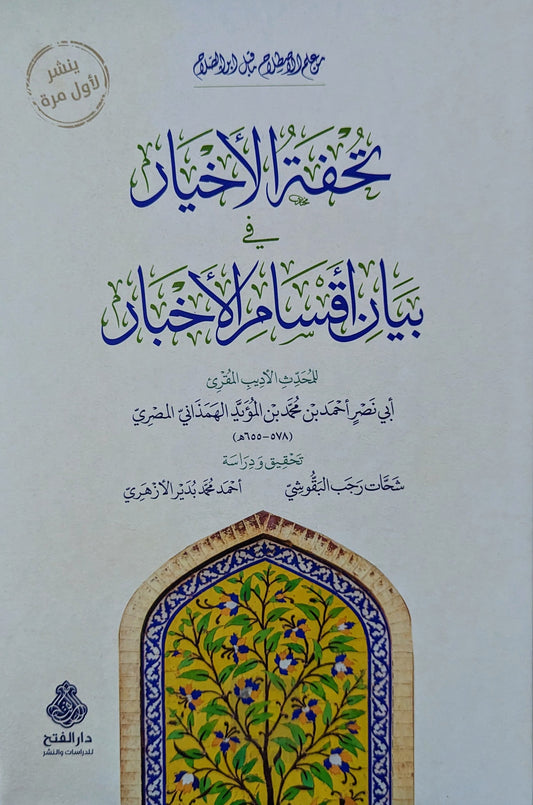 من علم الاصطلاح ما قبل ابن الصلاح
ينشر
لأول مرة
تُحْفَةُ الأَخْيَارِ
في
بَيَانِ أَقْسَامِ الأَخْبَارِ
للمُحَدِّثِ الأَدِيبِ المُقْرِئِ
أَبي نَصْرٍ أَحْمَدَ بْن مُحَمَّدِ بْن المُؤَيَّدِ الهَمَذَانيّ المصريّ
(٥٧٨-٦٥٥هـ)
تَحْقِيق وَدِرَاسَة
شَحَّات رَجَب البَقُّوشِيّ أحمد مُحَمَّد بُدَيْر الأزْهَرِيّ
دار الفتح
للدراسات والنشر